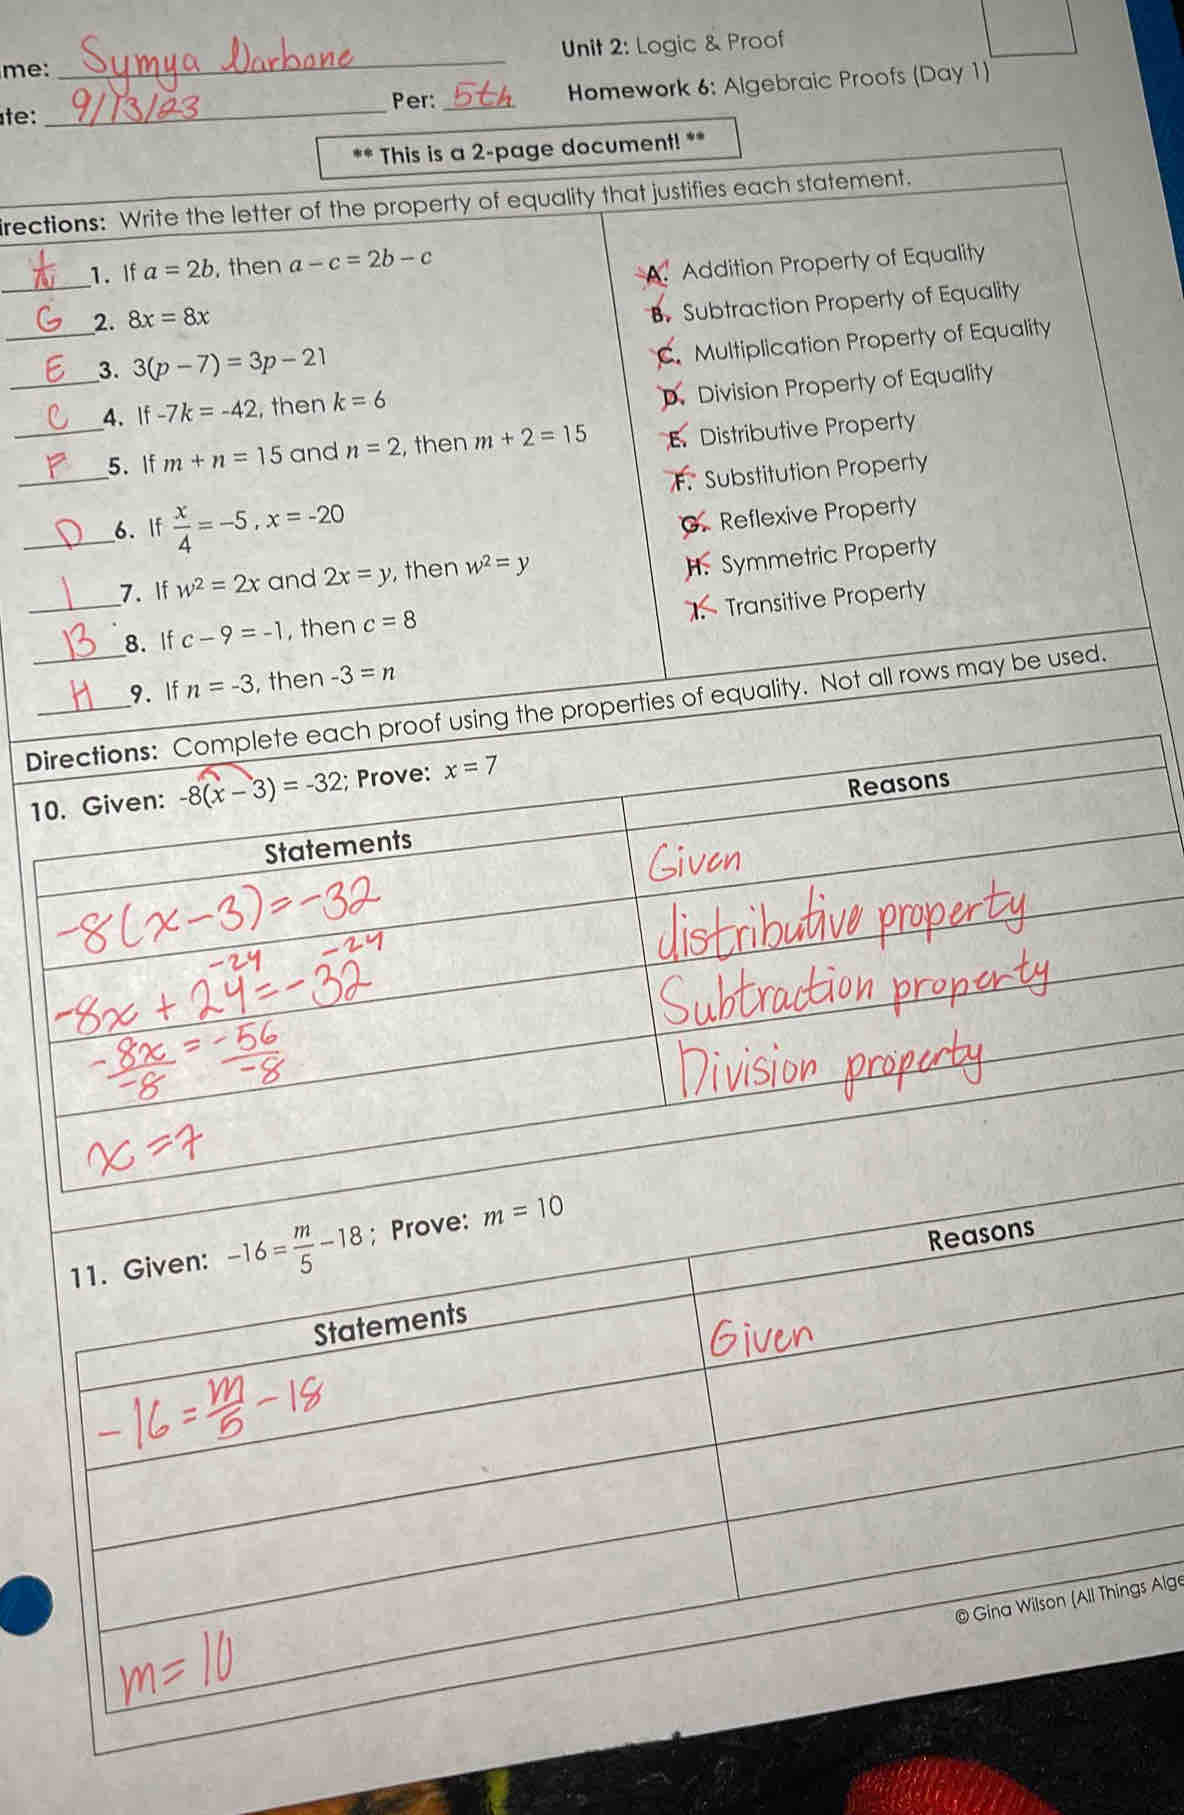 me: Symya Darbone Unit 2: Logic & Proof
ate: 9/13/23 Per: 5th Homework 6: Algebraic Proofs (Day 1)
** This is a 2-page document! **
irections: Write the letter of the property of equality that justifies each statement.
A 1. If a = 2b, then a − c = 2b − c
G 2. 8x = 8x
E 3. 3(p − 7) = 3p − 21
C 4. If -7k = -42, then k = 6
F 5. If m + n = 15 and n = 2, then m + 2 = 15
D 6. If x/4 = −5, x = -20
I 7. If w² = 2x and 2x = y, then w² = y
B 8. If c − 9 = -1, then c = 8
H 9. If n = -3, then -3 = n
A. Addition Property of Equality
B. Subtraction Property of Equality
C. Multiplication Property of Equality
D. Division Property of Equality
E. Distributive Property
F. Substitution Property
G. Reflexive Property
H. Symmetric Property
I. Transitive Property
Directions: Complete each proof using the properties of equality. Not all rows may be used.
10. Given: -8(x − 3) = -32; Prove: x = 7
Statements Reasons
-8(x-3)=-32 Given
-8x + 24 = -32 distributive property
-24 -24 Subtraction property
-8x/-8 = -56/-8 Division property
x=7
11. Given: −16 = m/5 − 18; Prove: m = 10
Statements Reasons
-16 = m/5 - 18 Given
m = 10
© Gina Wilson (All Things Alge